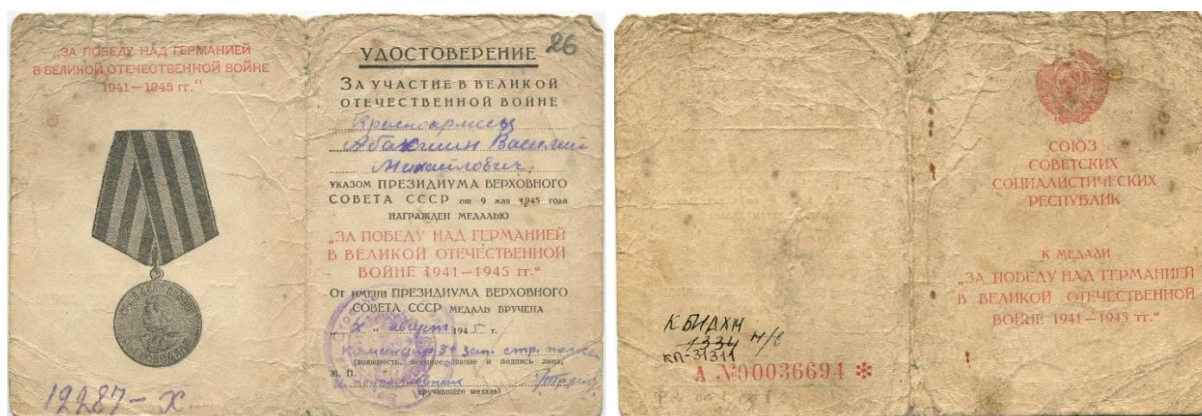 „ЗА ПОБЕДУ НАД ГЕРМАНИЕЙ
В ВЕЛИКОЙ ОТЕЧЕСТВЕННОЙ ВОЙНЕ
1941—1945 гг."
19287-Х
26
УДОСТОВЕРЕНИЕ
ЗА УЧАСТИЕ В ВЕЛИКОЙ
ОТЕЧЕСТВЕННОЙ ВОЙНЕ
Красноармеец
Абакшин Василий
Михайлович
УКАЗОМ ПРЕЗИДИУМА ВЕРХОВНОГО
СОВЕТА СССР от 9 мая 1945 года
НАГРАЖДЕН МЕДАЛЬЮ
„ЗА ПОБЕДУ НАД ГЕРМАНИЕЙ
В ВЕЛИКОЙ ОТЕЧЕСТВЕННОЙ
ВОЙНЕ 1941—1945 гг."
ОТ ИМЕНИ ПРЕЗИДИУМА ВЕРХОВНОГО
СОВЕТА СССР МЕДАЛЬ ВРУЧЕНА
август 1945 г.
Командир зап. стр. полка
(должность, военное звание и подпись лица,
М. П.
вручившего медаль)
КБИАХМ
1334 Н/В
КП-31311
А №0036694 *
СОЮЗ
СОВЕТСКИХ
СОЦИАЛИСТИЧЕСКИХ
РЕСПУБЛИК
К МЕДАЛИ
„ЗА ПОБЕДУ НАД ГЕРМАНИЕЙ
В ВЕЛИКОЙ ОТЕЧЕСТВЕННОЙ
ВОЙНЕ 1941—1945 гг."